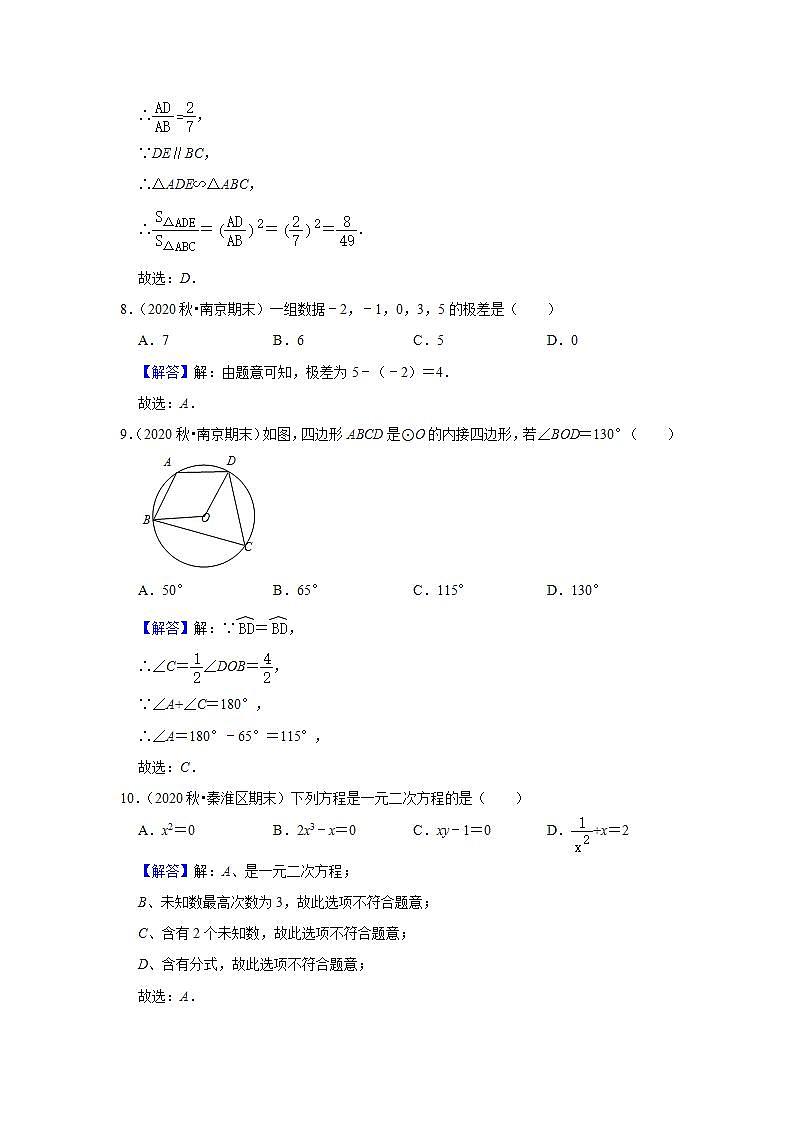 ∴AD/AB=2/7,
∵DE∥BC,
∴△ADE∽△ABC,
∴S△ADE/S△ABC=(AD/AB)²=(2/7)²=8/49.
故选：D.
8.（2020秋•南京期末）一组数据﹣2,﹣1,0,3,5的极差是（　　）
A.7 B.6 C.5 D.0
【解答】解：由题意可知,极差为5﹣（﹣2）＝4.
故选：A.
9.（2020秋•南京期末）如图,四边形ABCD是⊙O的内接四边形,若∠BOD＝130°（　　）
A D
B O
C
A.50° B.65° C.115° D.130°
【解答】解：∵BD=BD,
∴∠C=1/2∠DOB=4/2,
∵∠A+∠C＝180°,
∴∠A＝180°﹣65°＝115°,
故选：C.
10.（2020秋•秦淮区期末）下列方程是一元二次方程的是（　　）
A.x²＝0 B.2x³﹣x＝0 C.xy﹣1＝0 D.1/x²+x＝2
【解答】解：A、是一元二次方程；
B、未知数最高次数为3,故此选项不符合题意；
C、含有2个未知数,故此选项不符合题意；
D、含有分式,故此选项不符合题意；
故选：A.